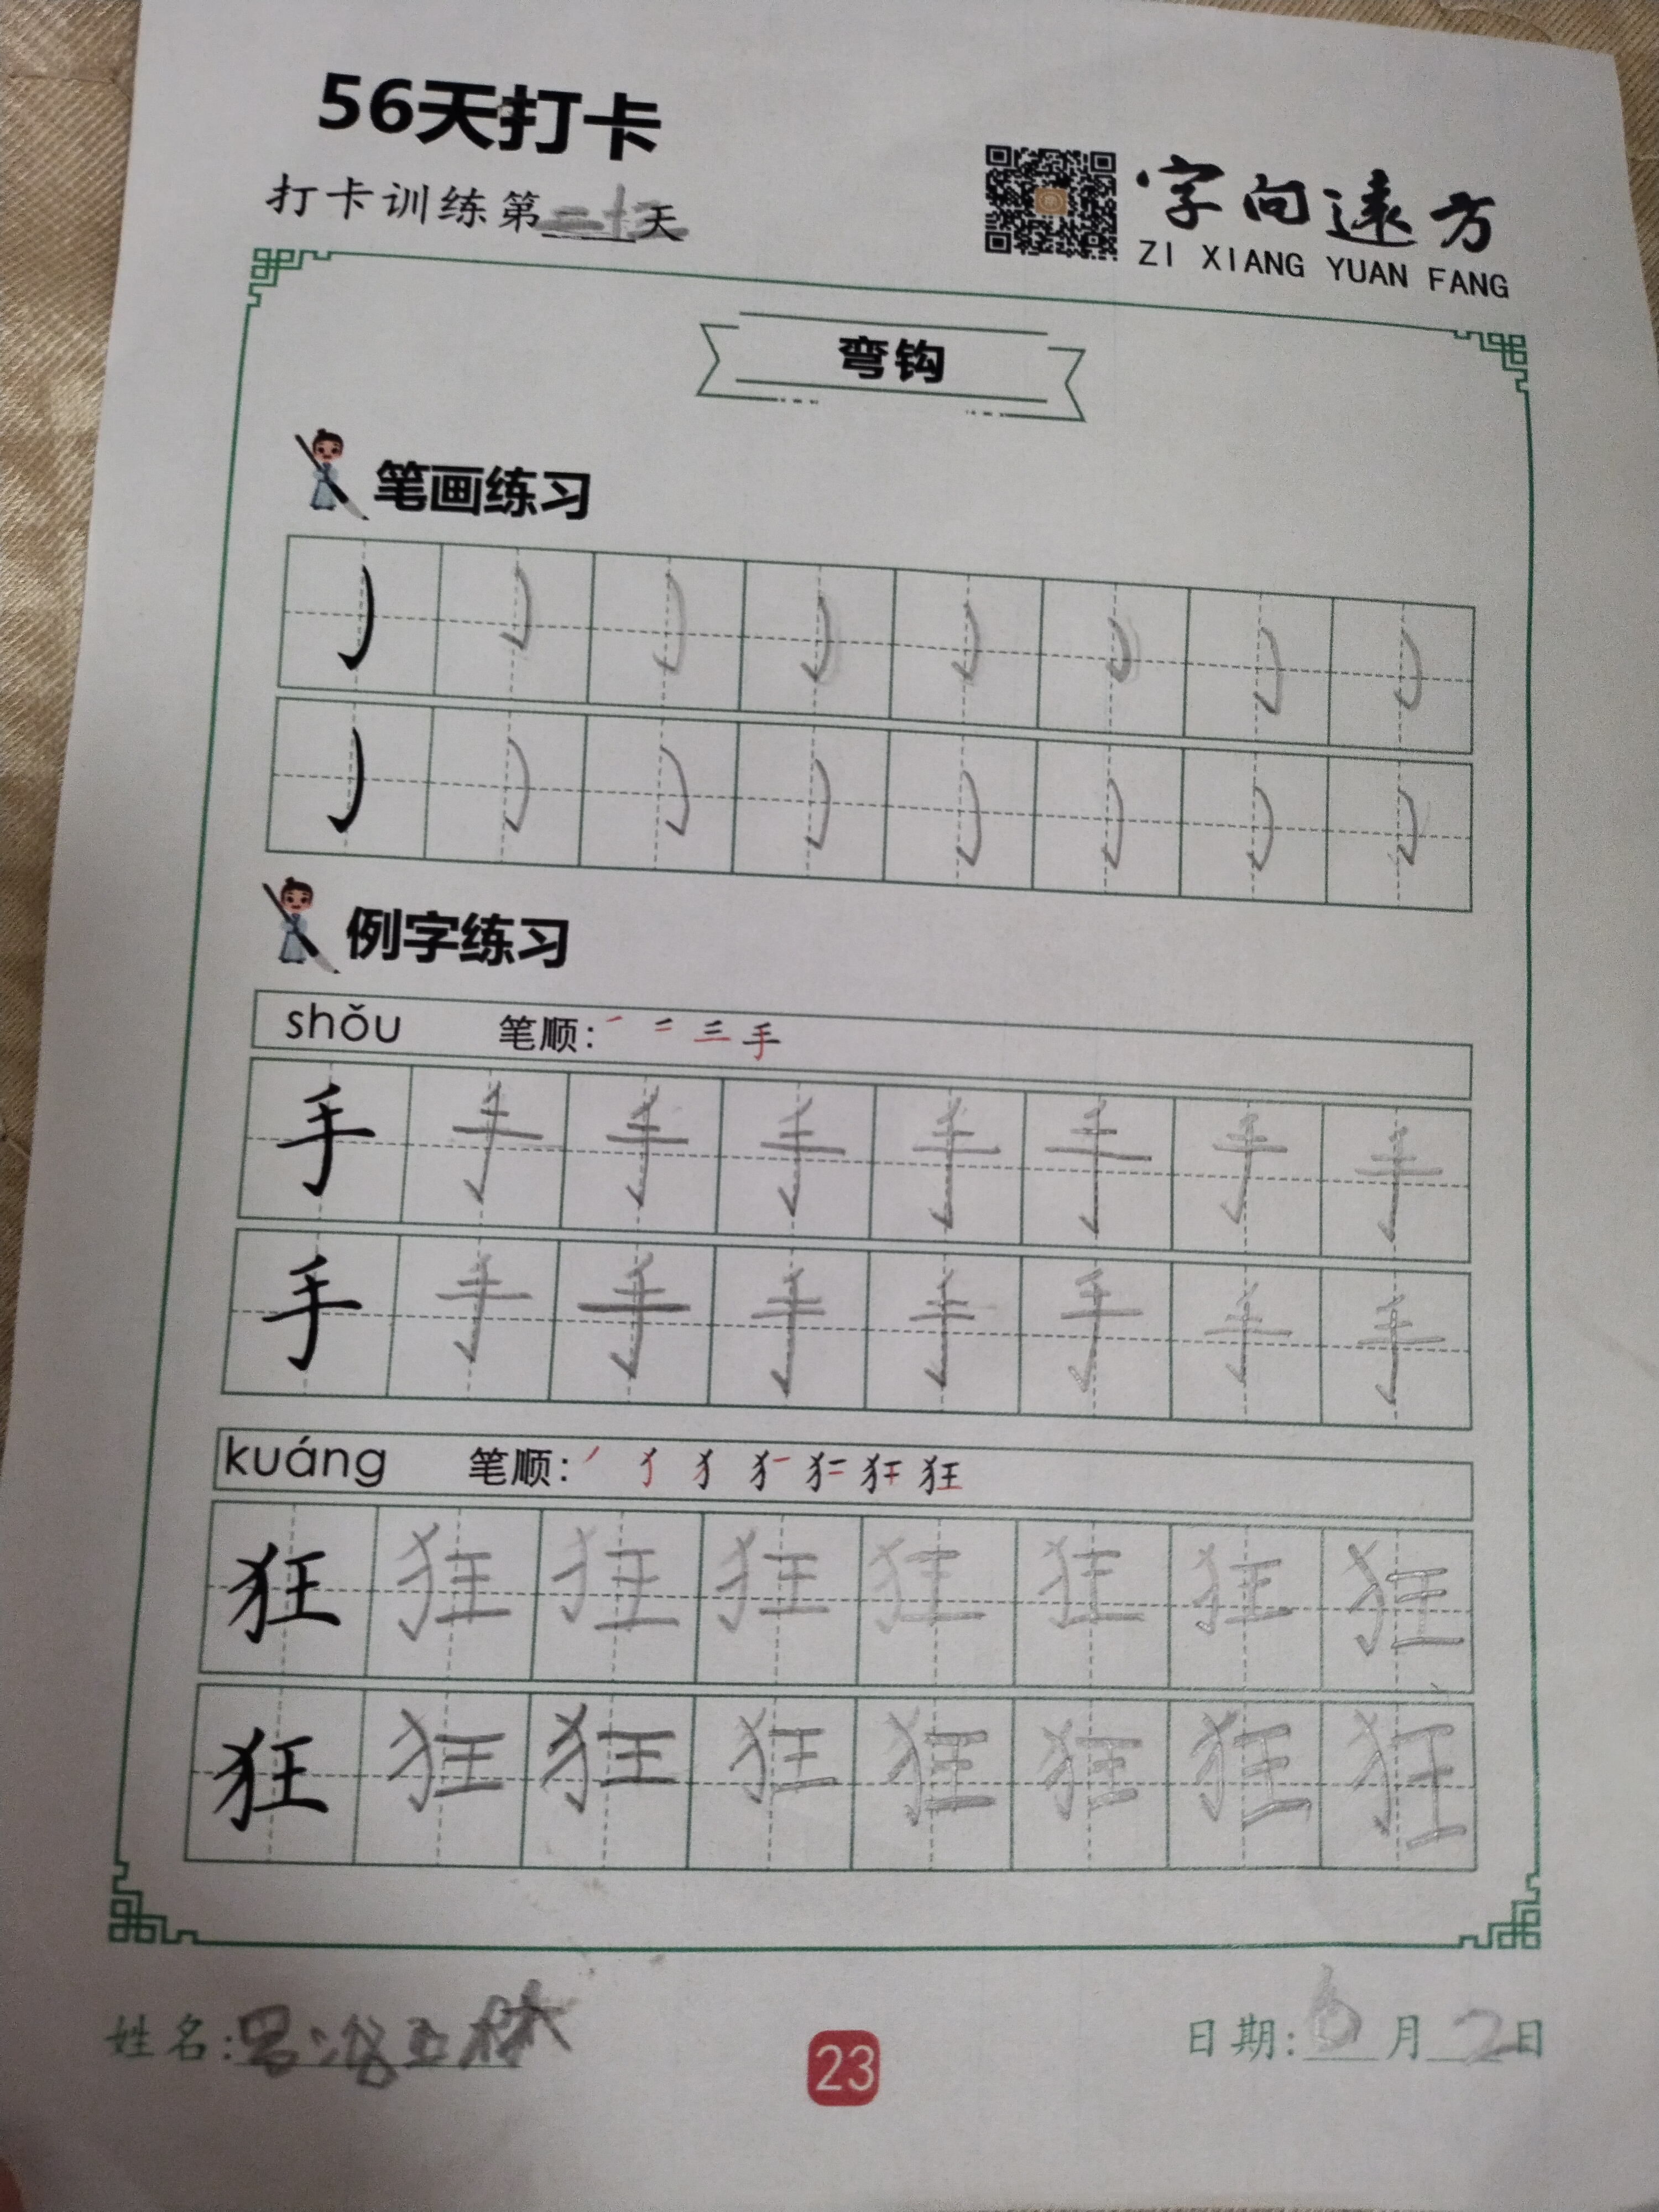 56天打卡
打卡训练第二十三天
字向遠方
ZI XIANG YUAN FANG
弯钩
笔画练习
例字练习
shǒu 笔顺: 一 二 三 手
手 手 手 手 手 手 手 手
手 手 手 手 手 手 手 手
kuáng 笔顺: 狂
狂 狂 狂 狂 狂 狂 狂 狂
狂 狂 狂 狂 狂 狂 狂 狂
姓名:
23
日期: 6月2日